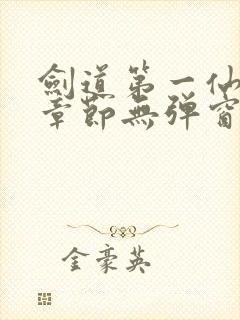 劍道第一仙
章節無彈窗
金豪英